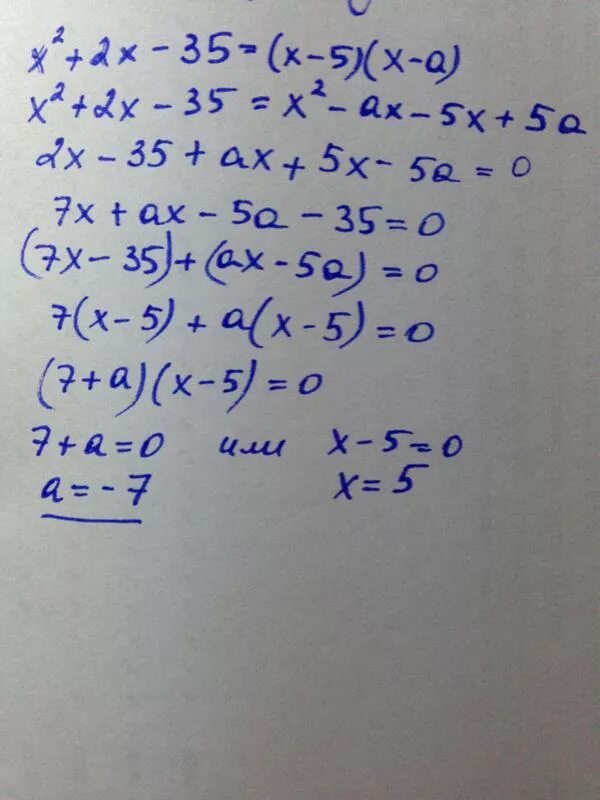 x² + 2x − 35 = (x − 5)(x − a)
x² + 2x − 35 = x² − ax − 5x + 5a
2x − 35 + ax + 5x − 5a = 0
7x + ax − 5a − 35 = 0
(7x − 35) + (ax − 5a) = 0
7(x − 5) + a(x − 5) = 0
(7 + a)(x − 5) = 0
7 + a = 0 или x − 5 = 0
a = − 7 x = 5